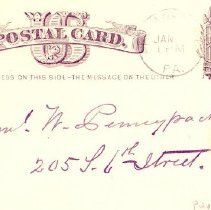 POSTAL CARD.
JAN
PM
PA.
ESS ON THIS SIDE–THE MESSAGE ON THE OTHER
W. Pennypack
205 S. 6th Street.